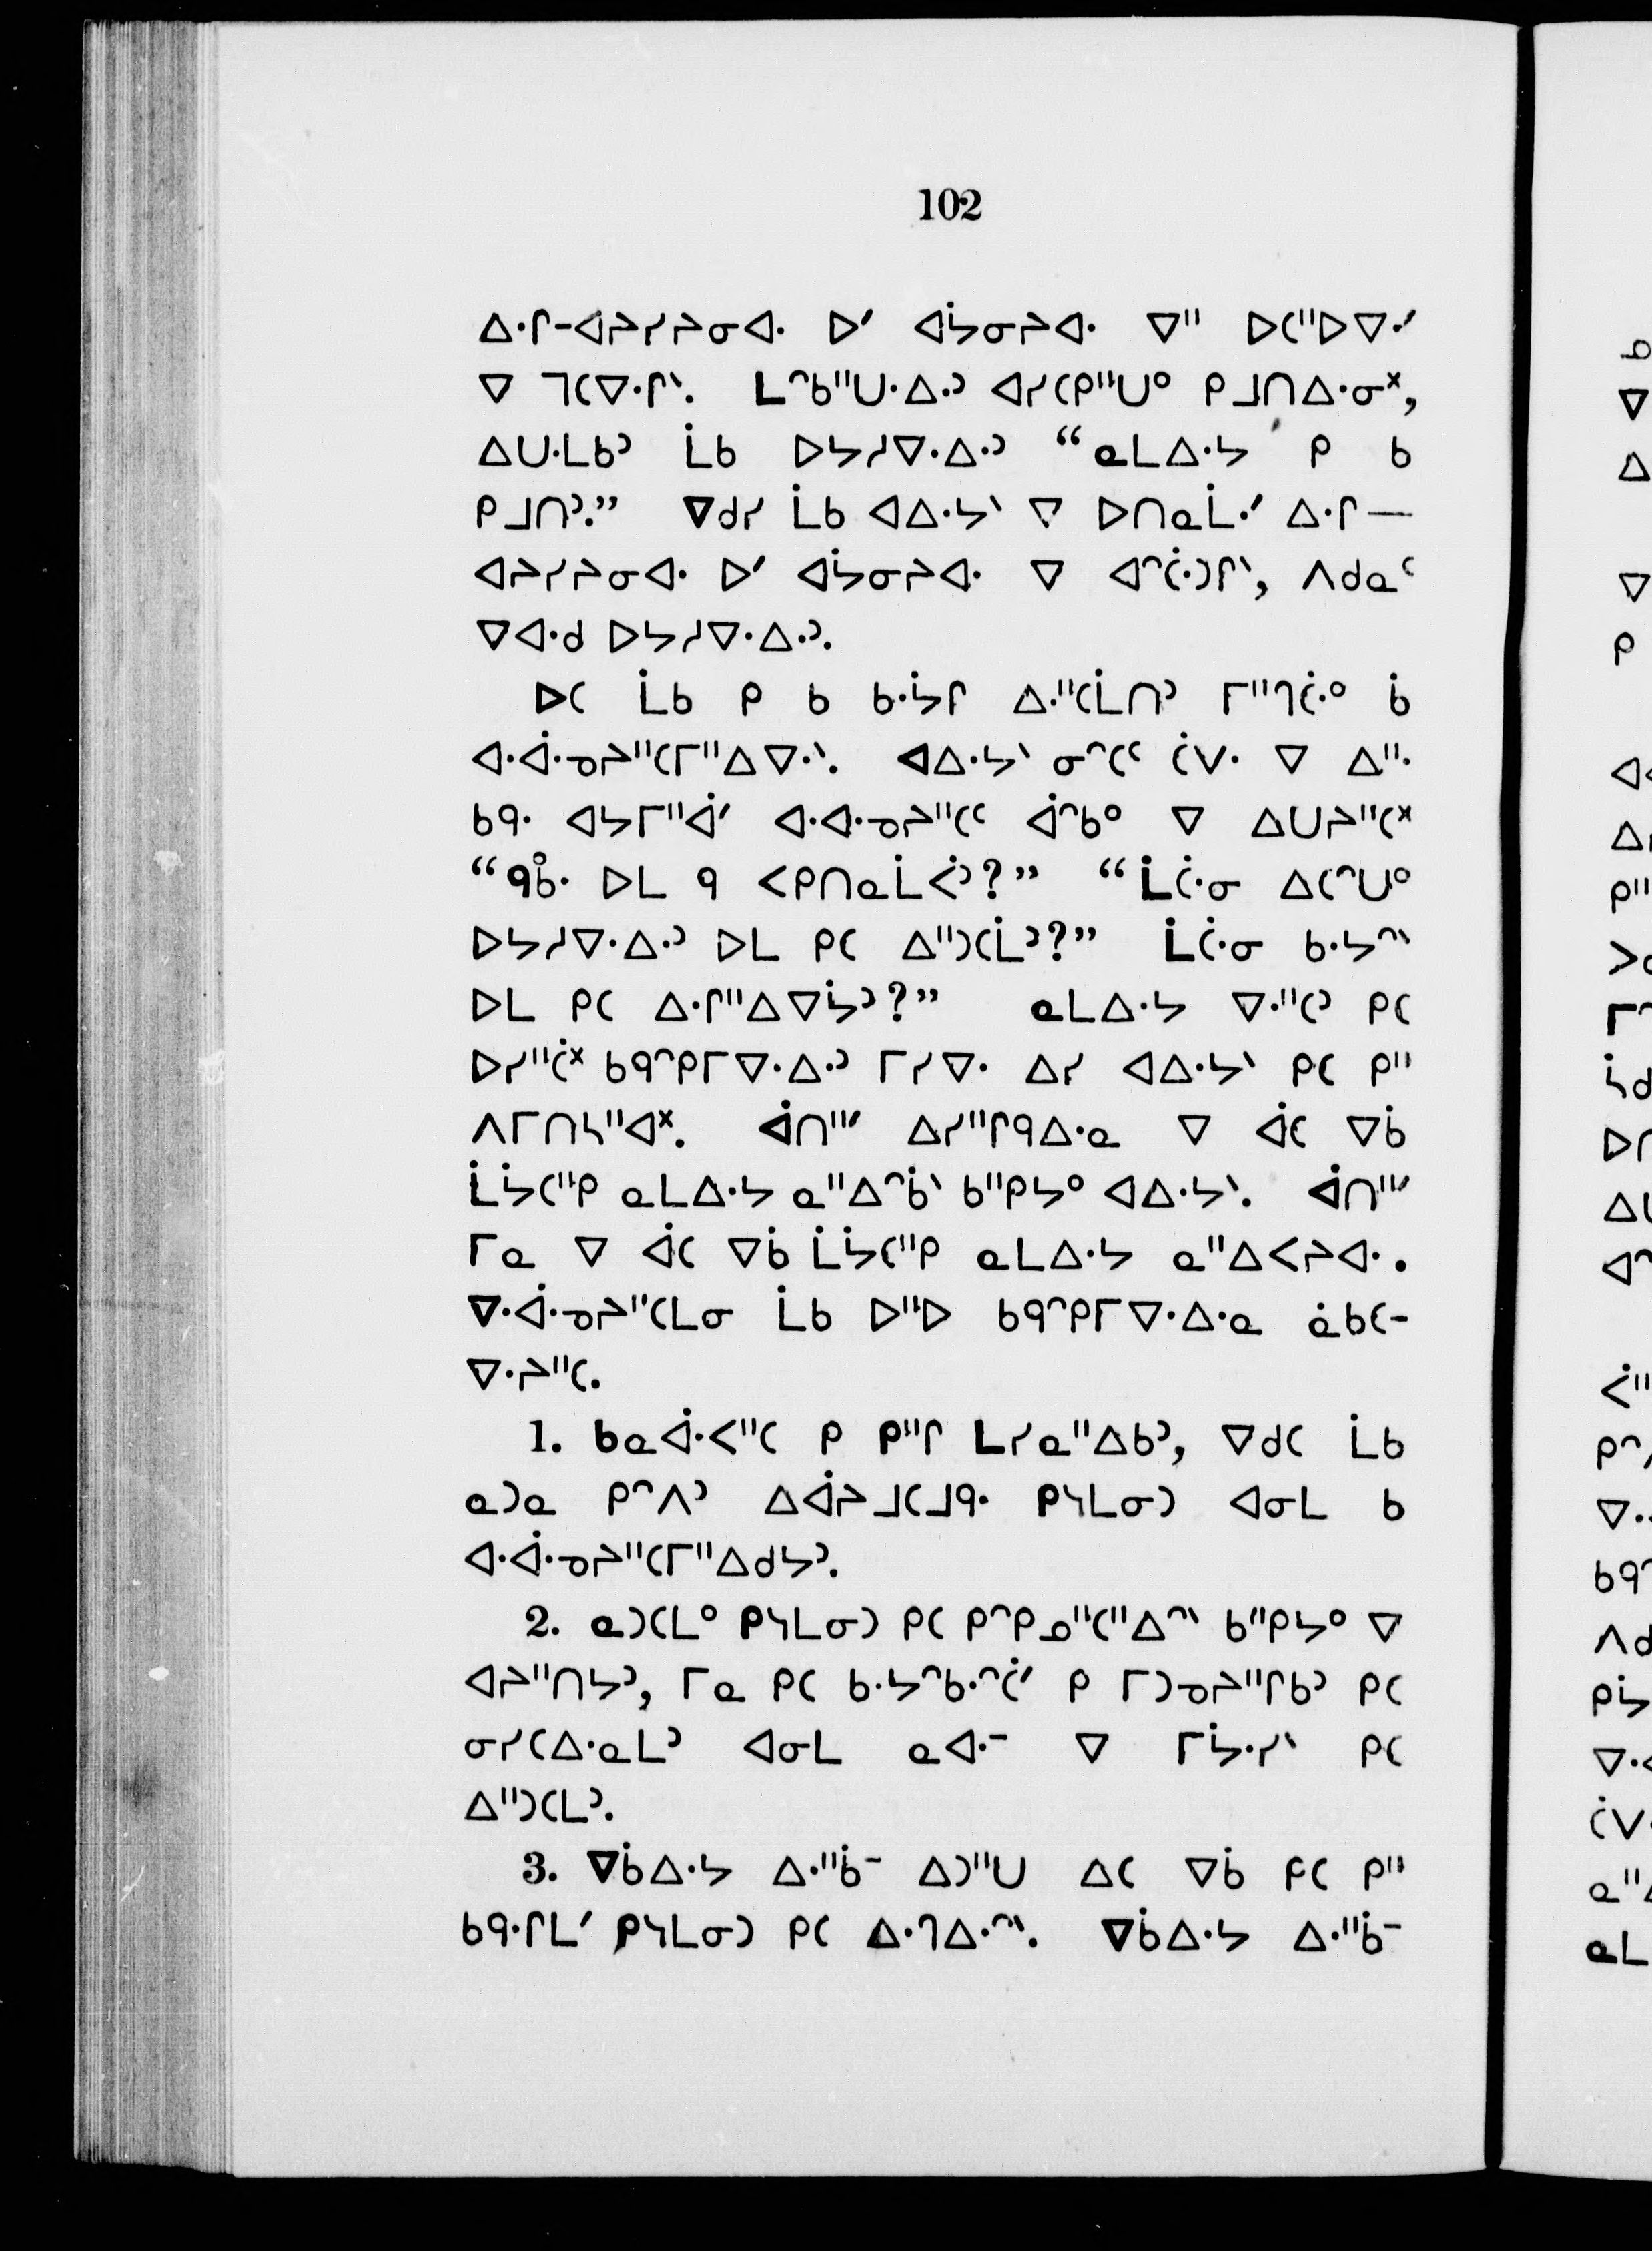 102
ᐃᐧᒋ-ᐊᔨᓯᔨᓂᐊᐧ ᐅᐟ ᐊᔮᓂᔨᐊᐧ ᐁᐦ ᐅᑕᐦᐅᐁᐧᐟ
ᐁ ᒣᑕᐁᐧᒋᐠ. ᒪᐢᑲᐦᑌᐧᐃᐧᐣ ᐊᓯᑕᑭᐦᑌᐤ ᑭ ᒧᑎᐃᐧᓂᕽ,
ᐃᑌᐧᒪᑲᐣ ᒫᑲ ᐅᔭᓱᐁᐧᐃᐧᐣ “ᓇᒪᐃᐧᔭ ᑭ ᑲ
ᑭᒧᑎᐣ.” ᐁᑯᓯ ᒫᑲ ᐊᐃᐧᔭᐠ ᐁ ᐅᑎᓇᒫᐧᐟ ᐃᐧᒋ—
ᐊᔨᓯᔨᓂᐊᐧ ᐅᐟ ᐊᔮᓂᔨᐊᐧ ᐁ ᐊᐢᑖᐧᑐᒋᐠ, ᐱᑯᓇᑦ
ᐁᐊᐧᑯ ᐅᔭᓱᐁᐧᐃᐧᐣ.
ᐅᑕ ᒫᑲ ᑭ ᑲ ᑲᐧᔮᒋ ᐃᐧᐦᑕᒫᑎᐣ ᒥᐦᒉᑖᐧᐤ ᑳ
ᐊᐧᐋᐧᓀᔨᐦᑕᒥᐦᐃᐁᐧᐠ. ᐊᐃᐧᔭᐠ ᓂᐢᑕᑦ ᑖᐯᐧ ᐁ ᐃᐧᐦ
ᑲᑫᐧ ᐊᔭᒥᐦᐋᐟ ᐊᐧᐊᐧᓀᔨᐦᑕᑦ ᐋᐢᑲᐤ ᐁ ᐃᑌᔨᐦᑕᕽ
“ᑫᑳᐤᐧ ᐅᒪ ᑫ ᐸᑭᑎᓇᒫᐹᐣ?” “ᒫᑖᐧᓂ ᐃᑕᐢᑌᐤ
ᐅᔭᓱᐁᐧᐃᐧᐣ ᐅᒪ ᑭᑕ ᐃᐦᑐᑕᒫᐣ?” ᒫᑖᐧᓂ ᑲᐧᔭᐢᐠ
ᐅᒪ ᑭᑕ ᐃᐧᒋᐦᐃᐁᔮᐣ?” ᓇᒪᐃᐧᔭ ᐁᐧᐦᑕᐣ ᑭᑕ
ᐅᓯᐦᑖᕽ ᑲᑫᐢᑭᒥᐁᐧᐃᐧᐣ ᒥᓯᐁᐧ ᐃᓯ ᐊᐃᐧᔭᐠ ᑭᑕ ᑭᐦ
ᐱᒥᑎᓴᐦᐊᕽ. ᐋᑎᐦᐟ ᐃᓯᐦᒋᑫᐃᐧᓇ ᐁ ᐋᑕ ᐁᑳ
ᒫᔮᑕᐦᑭ ᓇᒪᐃᐧᔭ ᓇᐦᐃᐢᑳᐠ ᑲᐦᑭᔭᐤ ᐊᐃᐧᔭᐠ. ᐋᑎᐦᐟ
ᒥᓇ ᐁ ᐋᑕ ᐁᑳ ᒫᔮᑕᐦᑭ ᓇᒪᐃᐧᔭ ᓇᐦᐃᐸᔨᐊᐧ.
ᐁᐧᐋᐧᓀᔨᐦᑕᒪᓂ ᒫᑲ ᐅᐦᐅ ᑲᑫᐢᑭᒥᐁᐧᐃᐧᓇ ᓈᑲᑕ-
ᐁᐧᔨᐦᑕ.
1. ᑲᓇᐋᐧᐸᐦᑕ ᑭ ᑭᐦᒋ ᒪᓯᓇᐦᐃᑲᐣ, ᐁᑯᑕ ᒫᑲ
ᓇᑐᓇ ᑭᐢᐱᐣ ᐃᐋᔨᒧᑕᒧᑫᐧ ᑭᓭᒪᓂᑐ ᐊᓂᒪ ᑲ
ᐊᐧᐋᐧᓀᔨᐦᑕᒥᐦᐃᑯᔭᐣ.
2. ᓇᑐᑕᒪᐤ ᑭᓭᒪᓂᑐ ᑭᑕ ᑭᐢᑭᓄᐦᑕᐦᐃᐢᐠ ᑲᐦᑭᔭᐤ ᐁ
ᐊᔨᐦᑎᔭᐣ, ᒥᓇ ᑭᑕ ᑲᐧᔭᐢᑲᐧᐢᑖᐟ ᑭ ᒥᑐᓀᔨᐦᒋᑲᐣ ᑭᑕ
ᓂᓯᑕᐃᐧᓇᒪᐣ ᐊᓂᒪ ᓇᐊᐧᐨ ᐁ ᒥᔮᐧᓯᐠ ᑭᑕ
ᐃᐦᑐᑕᒪᐣ.
3. ᐁᑳᐃᐧᔭ ᐃᐧᐦᑳᐨ ᐃᑐᐦᑌ ᐃᑕ ᐁᑳ ᑭᑕ ᑭᐦ
ᑲᑫᐧᒋᒪᐟ ᑭᓭᒪᓂᑐ ᑭᑕ ᐃᐧᒉᐃᐧᐢᐠ. ᐁᑳᐃᐧᔭ ᐃᐧᐦᑳᐨ